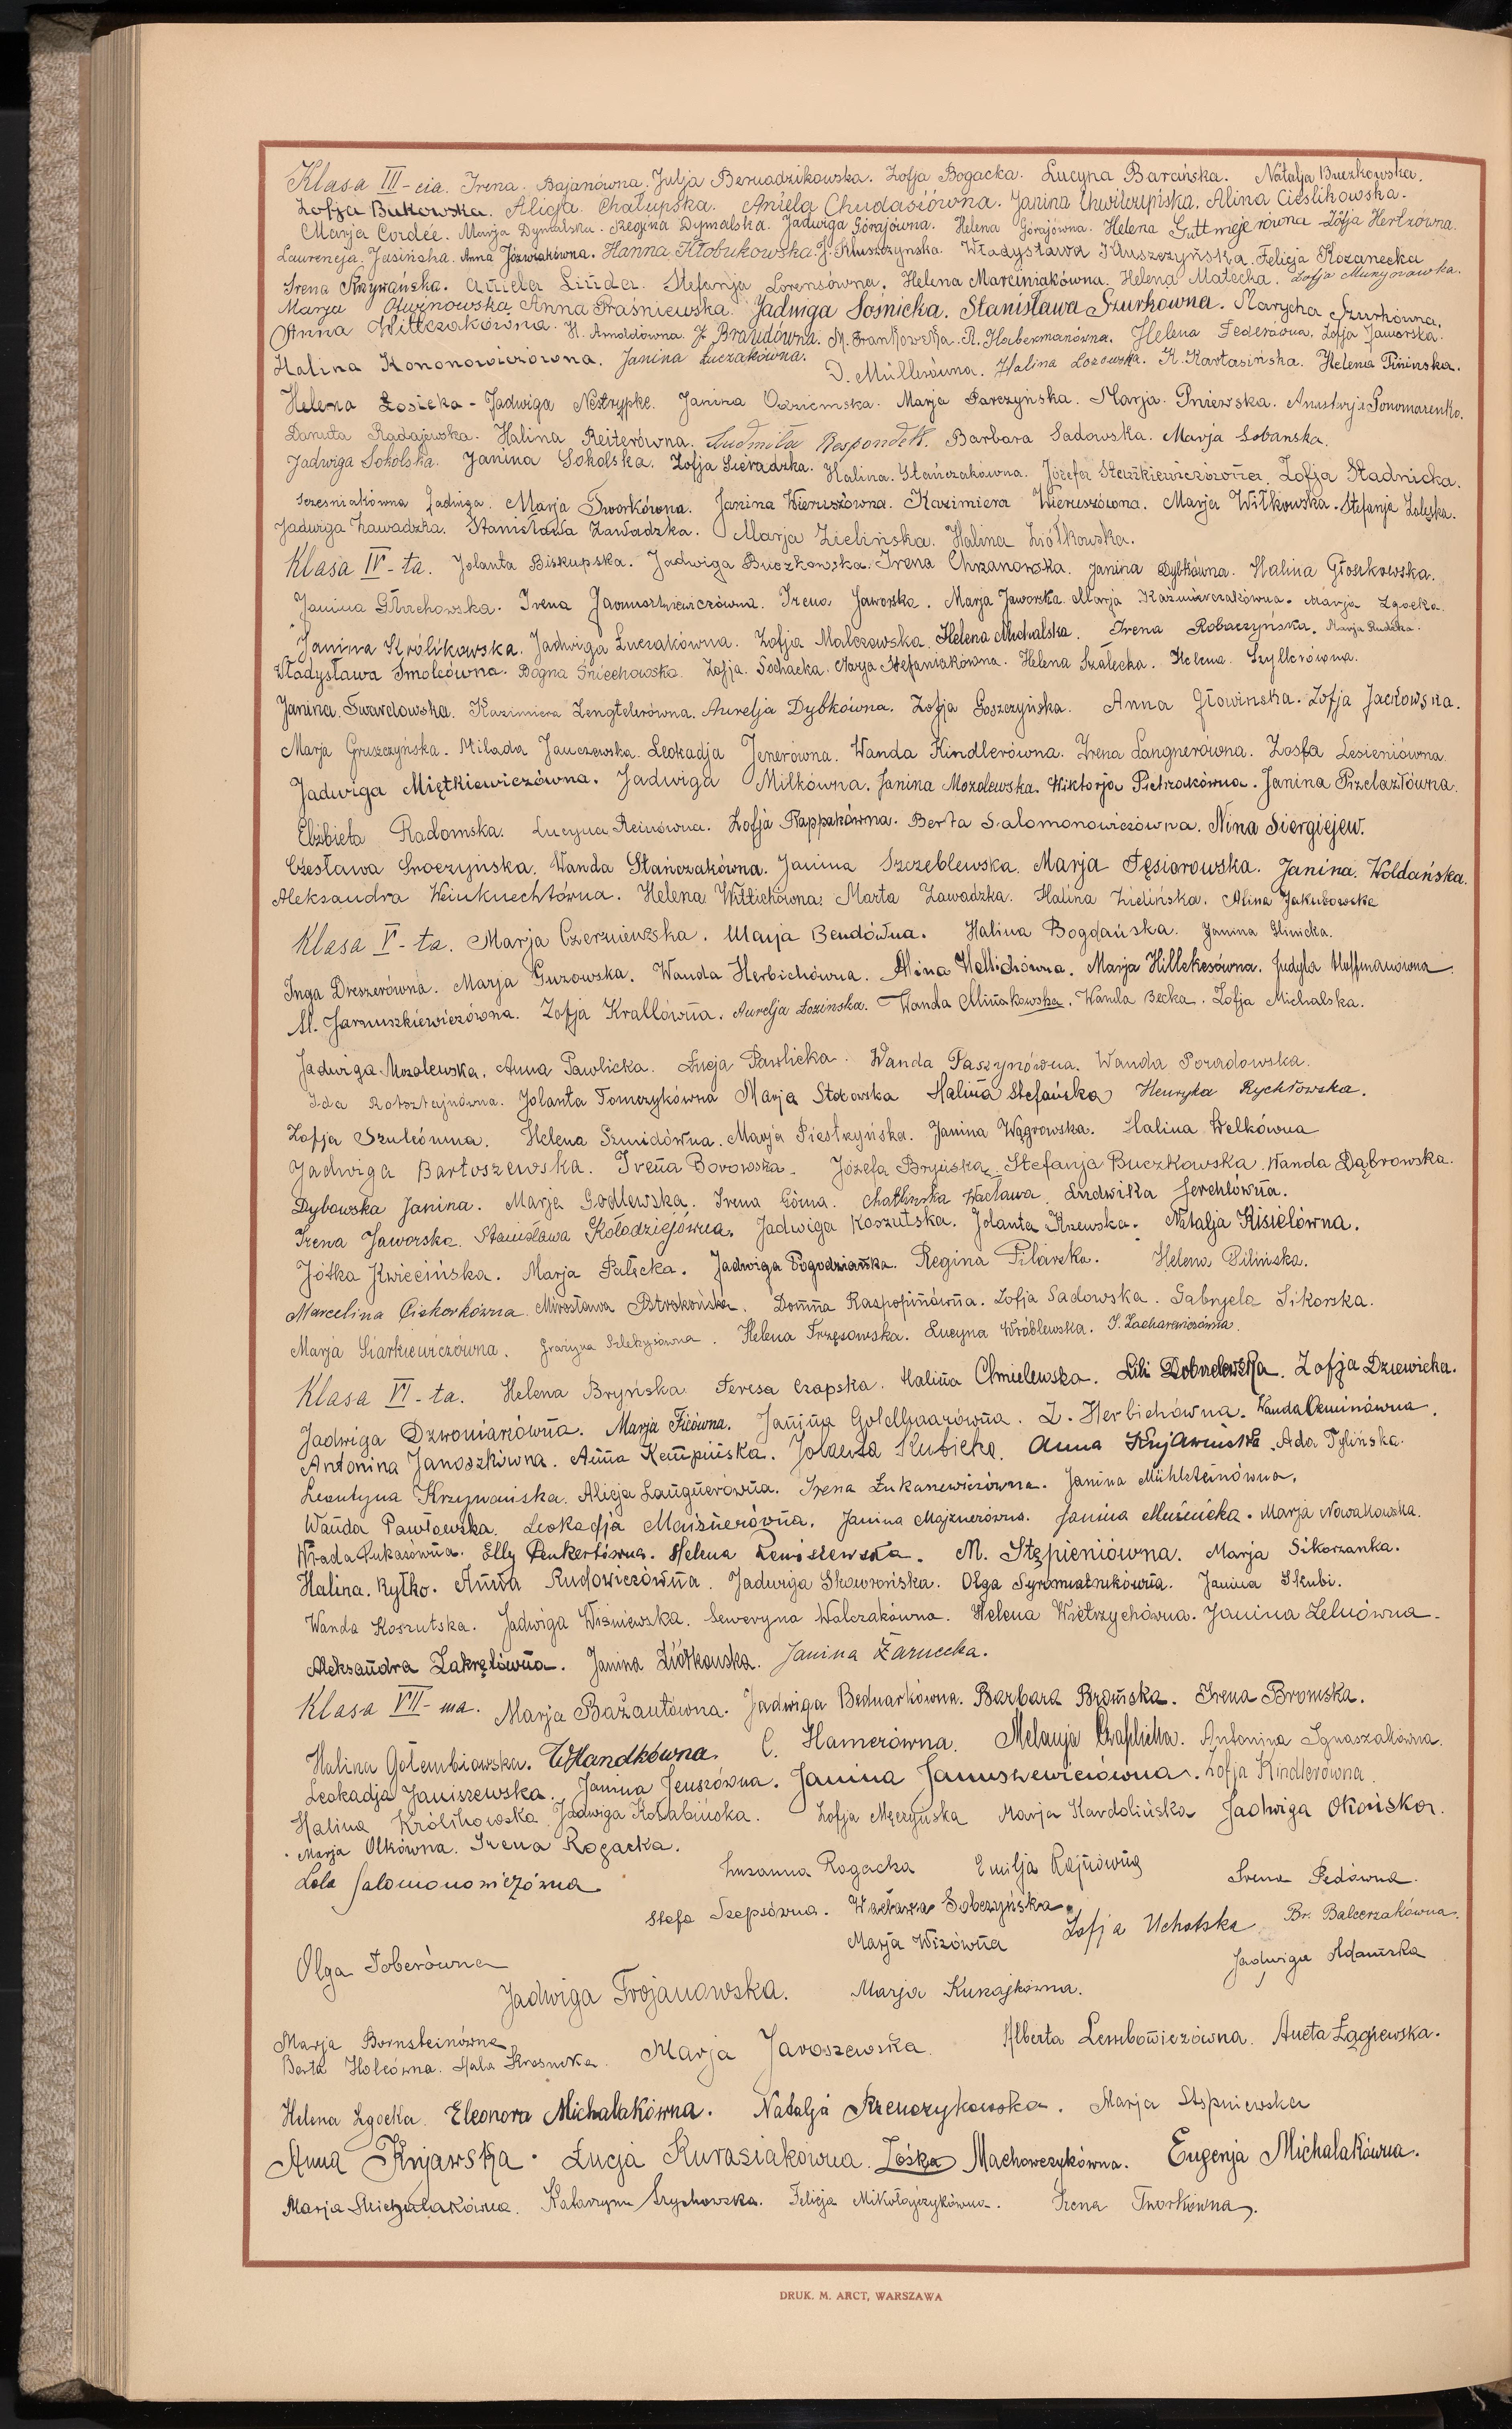 Klasa III-cia. Irena Bajanówna. Julja Bernadzikowska. Zofja Bogacka. Lucyna Barańska. Natalja Buczkowska.
Zofja Bukowska. Alicja Chałupska. Aniela Chudasiówna. Janina Chwiłowińska. Alina Cieślikowska.
Marja Cordée. Marja Dymalska. Regina Dymalska. Jadwiga Górajówna. Helena Górajówna. Helena Guttmejerówna Zofja Hertzówna.
Laurencja Jasińska. Anna Jóźwiakówna. Hanna Kłobukowska. J. Kluszczyńska. Władysława Kluszczyńska. Felicja Kozanecka
Irena Krzywańska. Aniela Linda. Stefanja Lorensówna. Helena Marciniakówna. Helena Matecka. Zofja
Marja Anna Praśniewska. Jadwiga Sośnicka. Stanisława Szurkówna. Marycha Szurkówna.
Anna Wittczakówna. H. Arnoldówna. J. Braudówna. M. Frankowska. R. Habermanówna. Helena Federówna. Zofja Jaworska.
Halina Kononowiczówna. Janina Łuczakówna. D. Müllerówna. Halina Łozowska. K. Kartasińska. Helena Pinińska.
Helena Łosicka - Jadwiga Nestrypke. Janina Oziemska. Marja Parczyńska. Marja Pniewska. Anastazja Ponomarenko.
Danuta Radajewska. Halina Reiterówna. Ludmiła Respondek. Barbara Sadowska. Marja Sobańska.
Jadwiga Sokolska. Janina Sokolska. Zofja Sieradzka. Halina Stańczakówna. Józefa Staszkiewiczówna. Zofja Stadnicka.
Jadwiga. Marja Tworkówna. Janina Wieruszówna. Kazimiera Wieruszówna. Marja Witkowska. Stefanja Zaleska.
Jadwiga Zawadzka. Stanisława Zawadzka. Marja Zielińska. Halina Ziółkowska.
Klasa IV-ta. Jolanta Biskupska. Jadwiga Buczkowska. Irena Chrzanowska. Janina Dybkówna. Halina Głoskowska.
Janina Głuchowska. Irena Jarnuszkiewiczówna. Irena Jaworska. Marja Jaworska. Marja Kaźmierczakówna. Marja Zgocka.
Janina Królikowska. Jadwiga Łuczakówna. Zofja Malczewska. Helena Michalska. Irena Robaczyńska. Marja Rudzka.
Władysława Smolcówna. Bogna Śniechowska. Zofja Sochacka. Marja Stefaniakówna. Helena Szalecka. Helena Szyllerówna.
Janina Twardowska. Kazimiera Zengtelerówna. Aurelja Dybkówna. Zofja Goszczyńska. Anna Głowińska. Zofja Jackowska.
Marja Gruszczyńska. Milada Janczewska. Leokadja Jenerówna. Wanda Kindlerówna. Irena Langnerówna. Zosfa Lesieniówna.
Jadwiga Miętkiewiczówna. Jadwiga Milkówna. Janina Mozolewska. Wiktorja Pietrzakówna. Janina Przelazłówna.
Elżbieta Radomska. Lucyna Reinówna. Zofja Rappakówna. Berta Salomonowiczówna. Nina Siergiejew.
Czesława Smoczyńska. Wanda Stańczakówna. Janina Szczeblewska. Marja Tęsiorowska. Janina Woldańska.
Aleksandra Weinknechtówna. Helena Wittichówna. Marta Zawadzka. Halina Zielińska. Alina Jakubowska
Klasa V-ta. Marja Czerniewska. Marja Bendówna. Halina Bogdańska. Janina Glinicka.
Inga Dreszerówna. Marja Guzowska. Wanda Herbichówna. Alina Hellichówna. Marja Hillekesówna. Judyta Hoffmanówna.
M. Jarnuszkiewiczówna. Zofja Krallówna. Aurelja Łozińska. Wanda Minakowska. Wanda Becka. Zofja Michalska.
Jadwiga Mozolewska. Anna Pawlicka. Łucja Pawlicka. Wanda Paszynówna. Wanda Poradowska.
Ida Rotsztajnówna. Jolanta Tomczykówna Marja Stokowska Halina Stefańska Henryka Rychłowska.
Zofja Szulcówna. Helena Szmidówna. Marja Piestrzyńska. Janina Wągrowska. Halina Welkówna
Jadwiga Bartoszewska. Irena Borowska. Józefa Bryńska. Stefanja Buczkowska. Wanda Dąbrowska.
Dybowska Janina. Marja Godlewska. Irena Górna. Chatłińska Wacława. Ludwika Jerchlówna.
Irena Jaworska. Stanisława Kołodziejówna. Jadwiga Koszutska. Jolanta Kzewska. Natalja Kisielówna.
Jótka Kwiecińska. Marja Pałęcka. Jadwiga Pogodziańska. Regina Pilarska. Helena Pilińska.
Marcelina Piskorkówna. Mirosława Ostrokońska. Domna Raspopinówna. Zofja Sadowska. Gabryela Sikorska.
Marja Siarkiewiczówna. Grażyna Szlekysówna. Helena Trzęsowska. Lucyna Wróblewska. S. Zacharewiczówna.
Klasa VI-ta. Helena Bryńska Teresa Czapska. Halina Chmielewska. Lili Dobudewska. Zofja Dziewicka.
Jadwiga Dzwoniarówna. Marja Ficówna. Janina Goldhaarówna. Z. Herbichówna. Wanda Ozminówna.
Antonina Janoszkówna. Anna Kempińska. Jolanta Kubicka. Anna Kujawińska. Ada Tylińska.
Leontyna Krzywańska. Alicja Laugnerówna. Irena Łukasiewiczówna. Janina Mühlsteinówna.
Wanda Pawłowska. Leokadja Maisnerówna. Janina Majznerówna. Janina Muśnicka. Marja Nowakowska.
Wrada Łukasówna. Elly Penkertówna. Helena Remiszewska. M. Stępieniówna. Marja Sikorzanka.
Halina Ryłko. Anna Rudowiczówna. Jadwiga Skowrońska. Olga Syromiatnikówna. Janina Skubi.
Wanda Koszutska. Jadwiga Wiśniewska. Seweryna Walczakówna. Helena Wietrzychówna. Janina Zelnówna.
Aleksandra Zakrętówna. Janina Ziółkowska. Janina Żarnecka.
Klasa VII-ma. Marja Bażantówna. Jadwiga Bednarkówna. Barbara Bromska. Irena Bromska.
Halina Gołembiowska. W. Handkówna. C. Hamerówna. Melanja Czaplicka. Antonina Ignaszakówna.
Leokadja Janiszewska. Janina Jeuszówna. Janina Januszewiczówna. Zofja Kindlerówna.
Halina Królikowska Jadwiga Korabińska. Zofja Męczyńska Marja Kardolińska Jadwiga Okońska.
Marja Olkówna. Irena Rogacka.
Lola Salomonowiczówna Zuzanna Rogacka Emilja Rajnówna Irena Pedówna.
Stefa Szepsówna. Wacława Sobczyńska. Zofja Uchotska Br. Balcerzakówna.
Marja Wizówna Jadwiga Adamska
Olga Toberówna
Jadwiga Trojanowska. Marja Kunajkówna.
Marja Bornsteinówna Marja Jaroszewska. Alberta Lembowiczówna. Aneta Łągiewska.
Berta Holcówna. Hala Krasnicka.
Helena Zgocka. Eleonora Michalakówna. Natalja Krzenczykowska. Marja Stępniewska
Anna Kujawska. Łucja Kurasiakówna. Zośka Machowczykówna. Eugenja Michalakówna.
Marja Michalakówna. Katarzyna Szychowska. Felicja Mikołajczykówna. Irena Tworkówna.
DRUK. M. ARCT, WARSZAWA